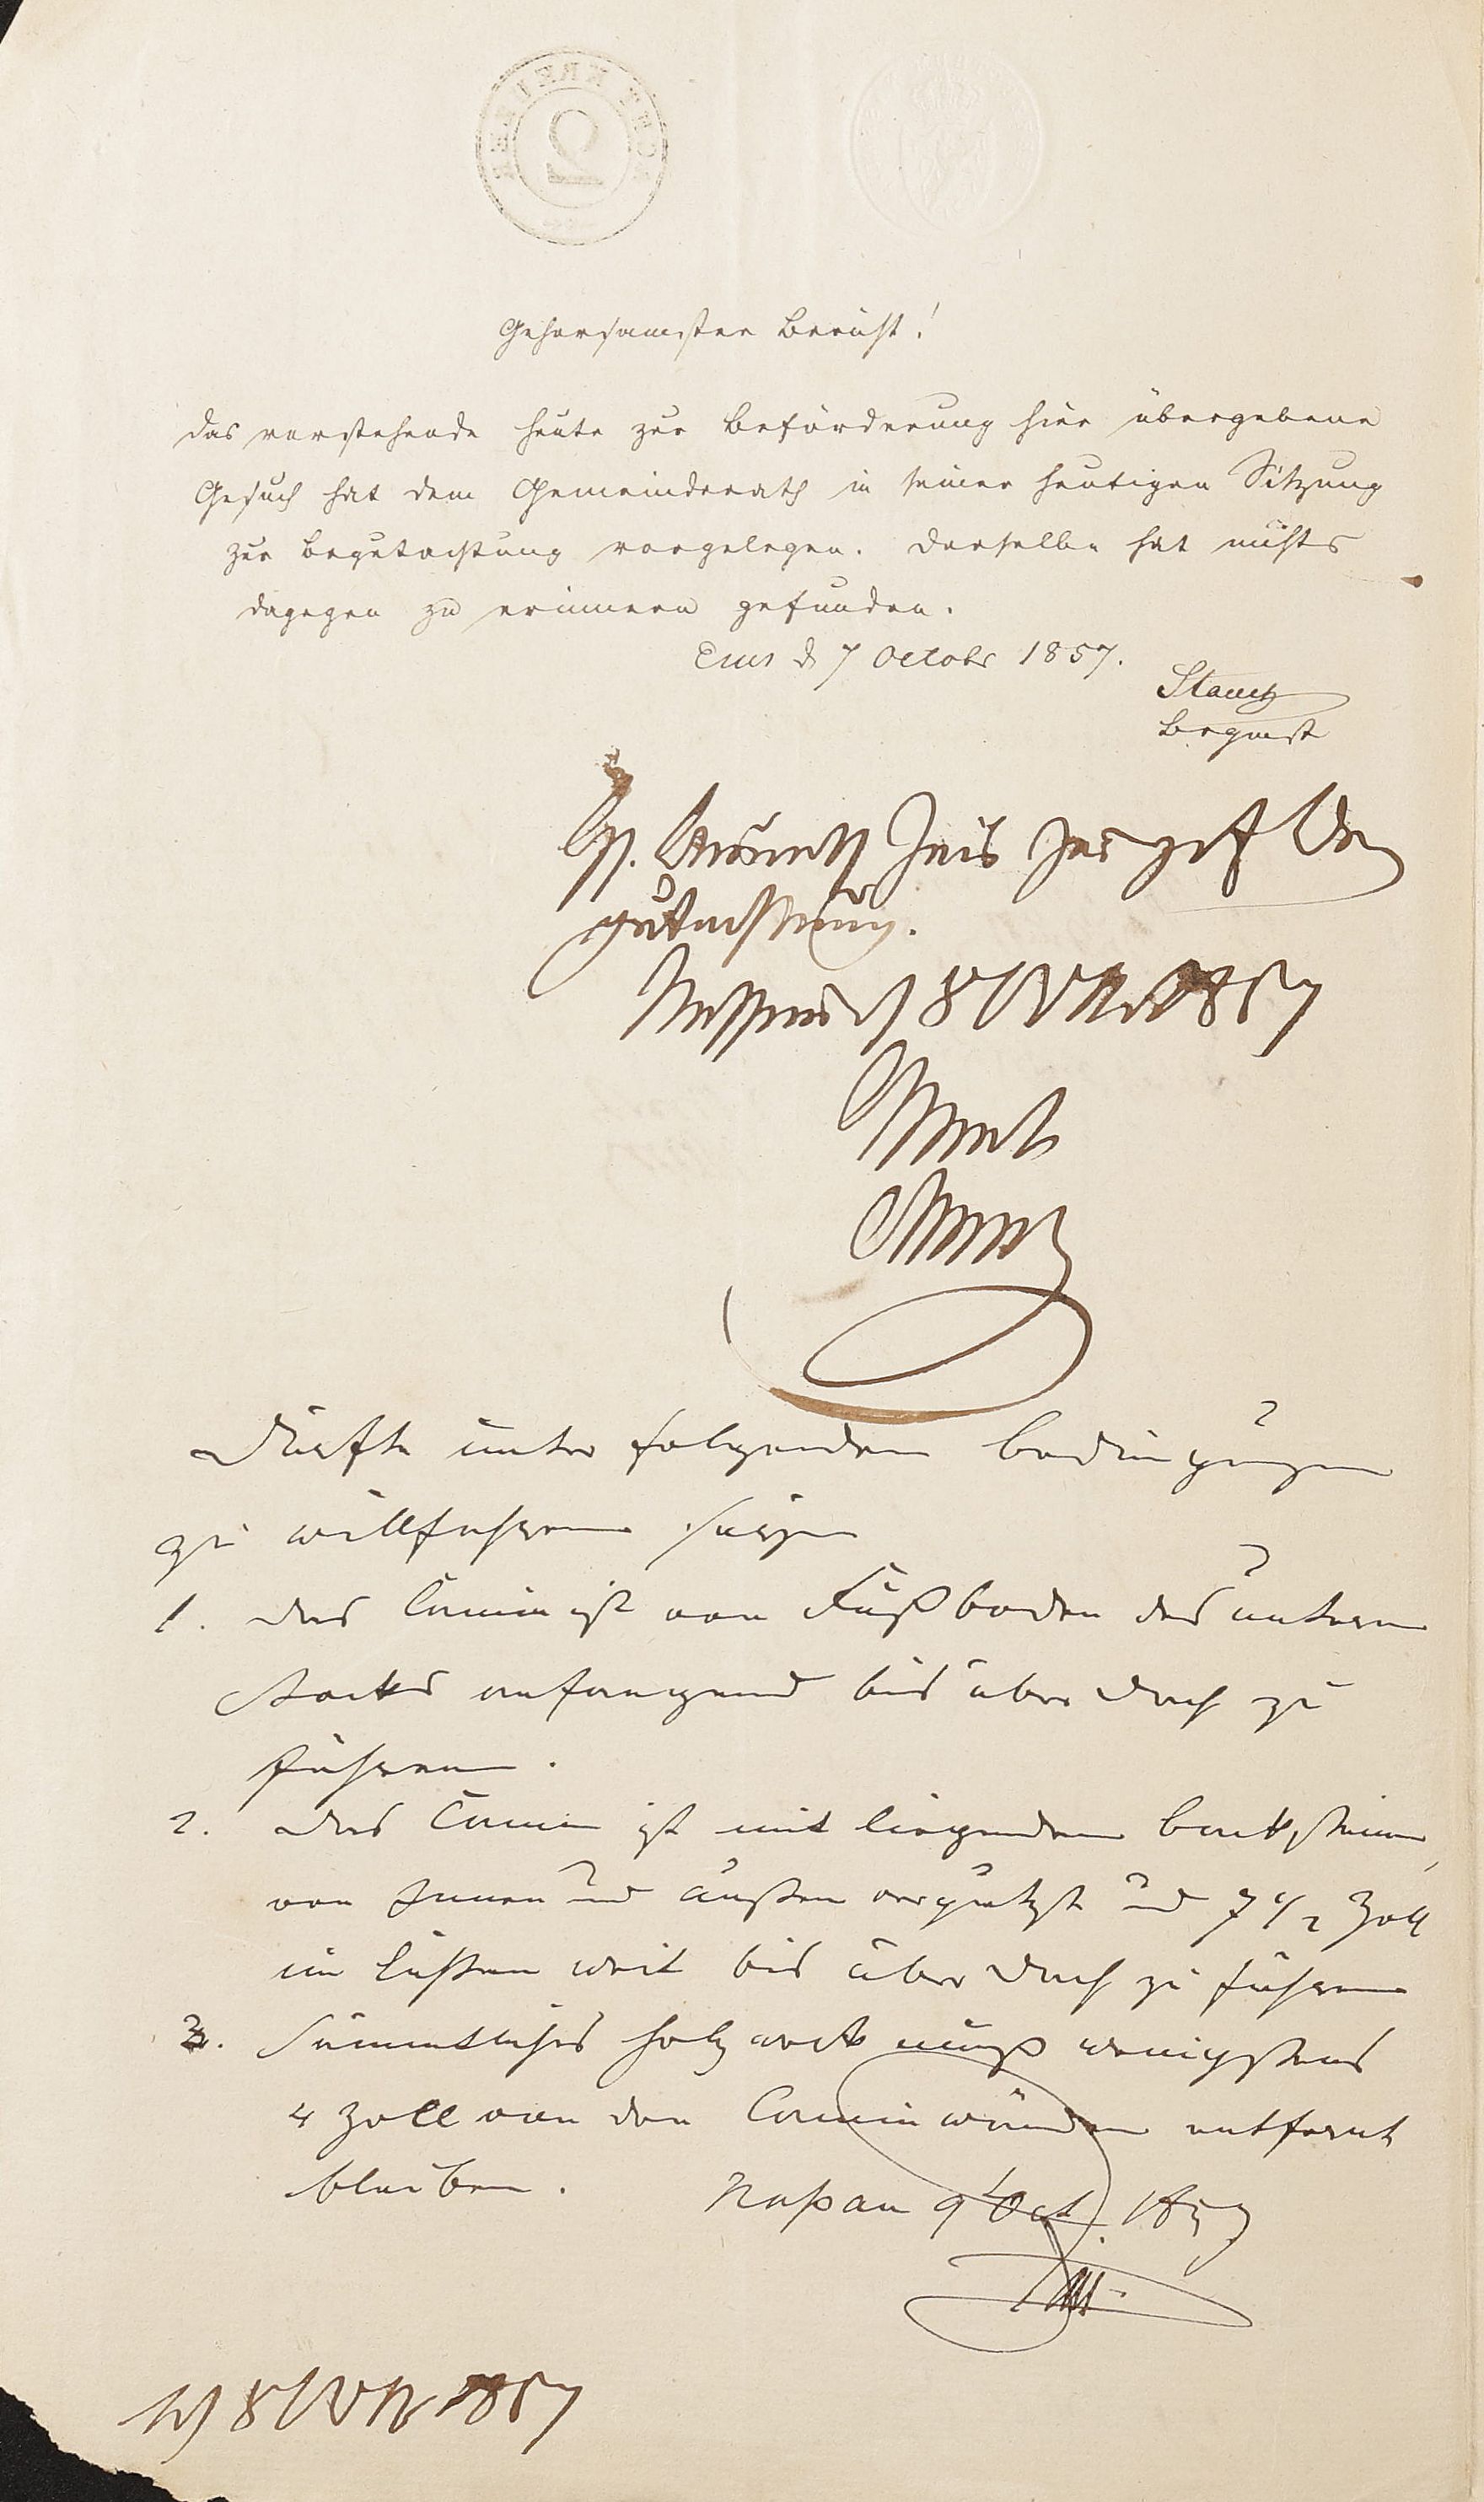 2
Gehorsamster Bericht!
Das vorstehende heute zur Beförderung hier übergebene
Gesuch hat dem Gemeinderath in seiner heutigen Sitzung
zur Begutachtung vorgelegen. Derselbe hat nichts
dagegen zu erinnern gefunden.
Ems d 7 Octobr 1857.
gutachtung.
Nassau d 8 1857
Dürfte unter folgenden Bedingungen
zu willfahren sein
1. Das Camin ist vom Fußboden des untern
Stocks anfangend bis über Dach zu
führen.
2. Das Camin ist mit liegenden Backsteinen,
von Innen und außen verputzt und 7 1/2 Zoll
im Lichten weit bis über Dach zu führen
3. Sämmtliches Holzwerk muß wenigstens
4 Zoll von den Caminwänden entfernt
bleiben.
Naßau 9 Oct. 1857
8 1857